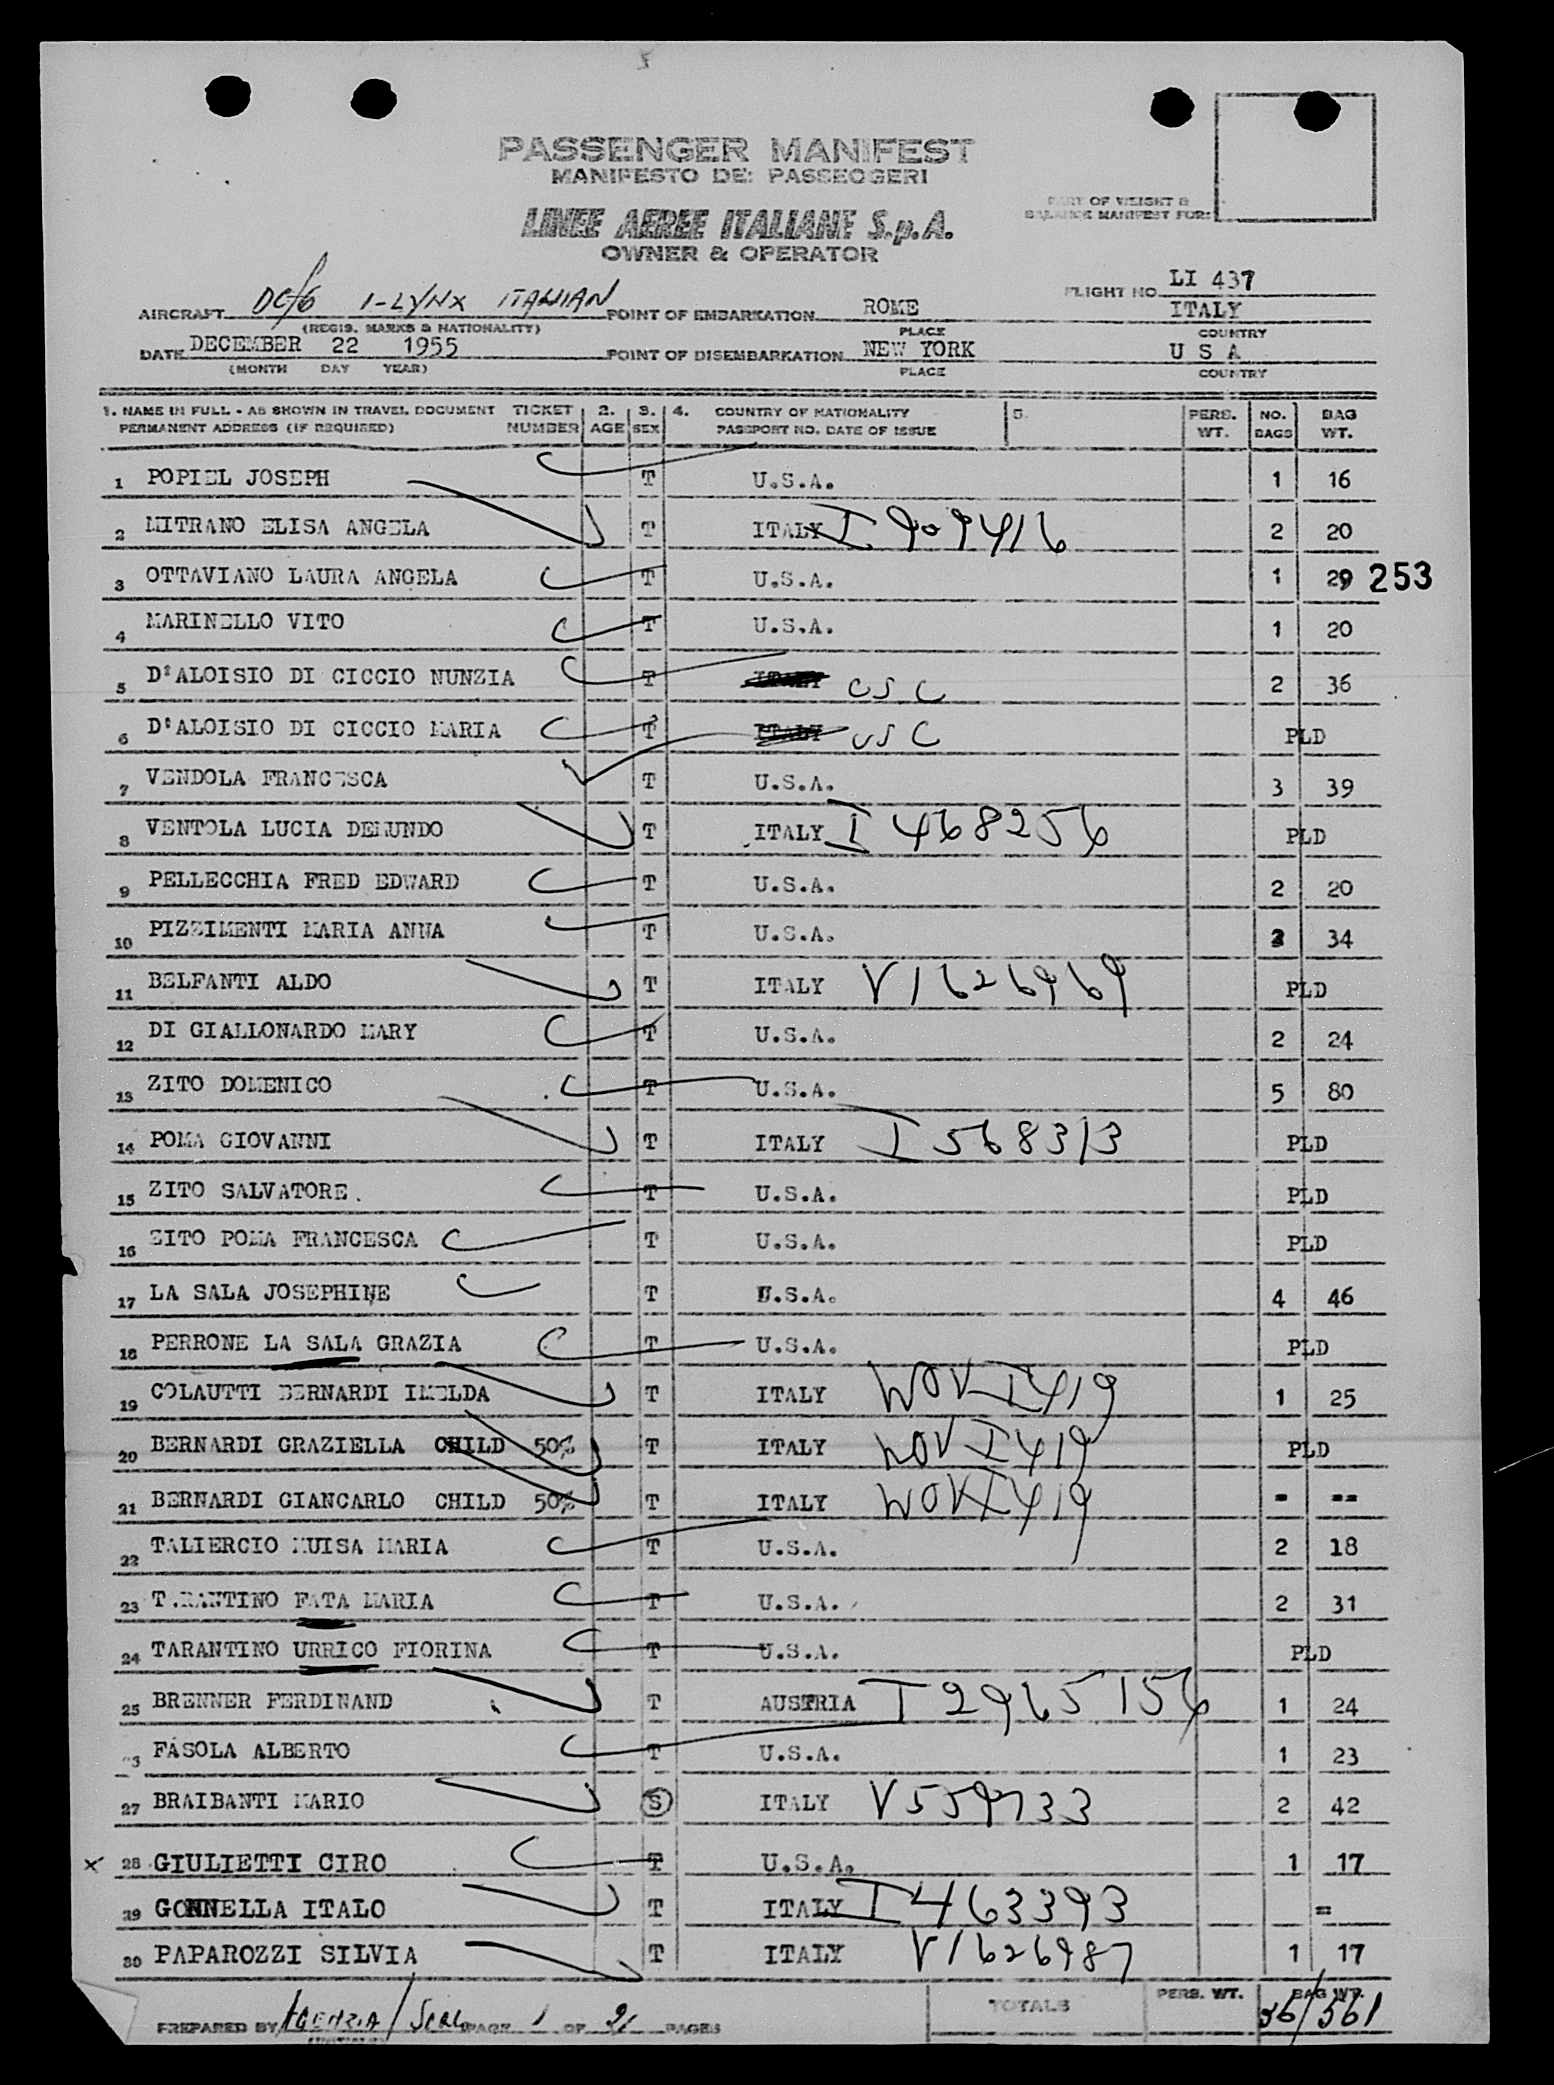 PASSENGER MANIFEST
MANIFESTO DEI PASSEGGERI
LINEE AEREE ITALIANE S.p.A.
OWNER & OPERATOR
PART OF WEIGHT &
BALANCE MANIFEST FORM
AIRCRAFT DC/6 I-LYNX ITALIAN POINT OF EMBARKATION ROME FLIGHT NO. LI 437
ITALY
(REGIS. MARKS & NATIONALITY) PLACE COUNTRY
DATE DECEMBER 22 1955 POINT OF DISEMBARKATION NEW YORK U S A
(MONTH DAY YEAR) PLACE COUNTRY
1. NAME IN FULL - AS SHOWN IN TRAVEL DOCUMENT TICKET 2. 3. 4. COUNTRY OF NATIONALITY 5. PERS. NO. BAG
PERMANENT ADDRESS (IF REQUIRED) NUMBER AGE SEX PASSPORT NO. DATE OF ISSUE WT. BAGS WT.
1 POPIEL JOSEPH T U.S.A. 1 16
2 MITRANO ELISA ANGELA T ITALY I 909416 2 20
3 OTTAVIANO LAURA ANGELA T U.S.A. 1 29 253
4 MARINELLO VITO T U.S.A. 1 20
5 D'ALOISIO DI CICCIO NUNZIA T ITALY USC 2 36
6 D'ALOISIO DI CICCIO MARIA T ITALY USC PLD
7 VENDOLA FRANCESCA T U.S.A. 3 39
8 VENTOLA LUCIA DEMUNDO T ITALY I 468256 PLD
9 PELLECCHIA FRED EDWARD T U.S.A. 2 20
10 PIZZIMENTI MARIA ANNA T U.S.A. 34
11 BELFANTI ALDO T ITALY V1626969 PLD
12 DI GIALLONARDO MARY T U.S.A. 2 24
13 ZITO DOMENICO T U.S.A. 5 80
14 POMA GIOVANNI T ITALY I 568313 PLD
15 ZITO SALVATORE. T U.S.A. PLD
16 ZITO POMA FRANCESCA T U.S.A. PLD
17 LA SALA JOSEPHINE T U.S.A. 4 46
18 PERRONE LA SALA GRAZIA T U.S.A. PLD
19 COLAUTTI BERNARDI IMELDA T ITALY WOVI419 1 25
20 BERNARDI GRAZIELLA CHILD 50% T ITALY WOVI419 PLD
21 BERNARDI GIANCARLO CHILD 50% T ITALY WOVI419 - --
22 TALIERCIO MUISA MARIA T U.S.A. 2 18
23 TARANTINO FATA MARIA T U.S.A. 2 31
24 TARANTINO URRICO FIORINA T U.S.A. PLD
25 BRENNER FERDINAND T AUSTRIA I 2965156 1 24
FASOLA ALBERTO T U.S.A. 1 23
27 BRAIBANTI MARIO S ITALY V559733 2 42
x 28 GIULIETTI CIRO T U.S.A. 1 17
29 GONNELLA ITALO T ITALY I 463393 =
30 PAPAROZZI SILVIA T ITALY V1626987 1 17
PREPARED BY AGENZIA/ PAGE 1 OF 2 PAGES TOTALS PERS. WT. BAG WT.
36/561